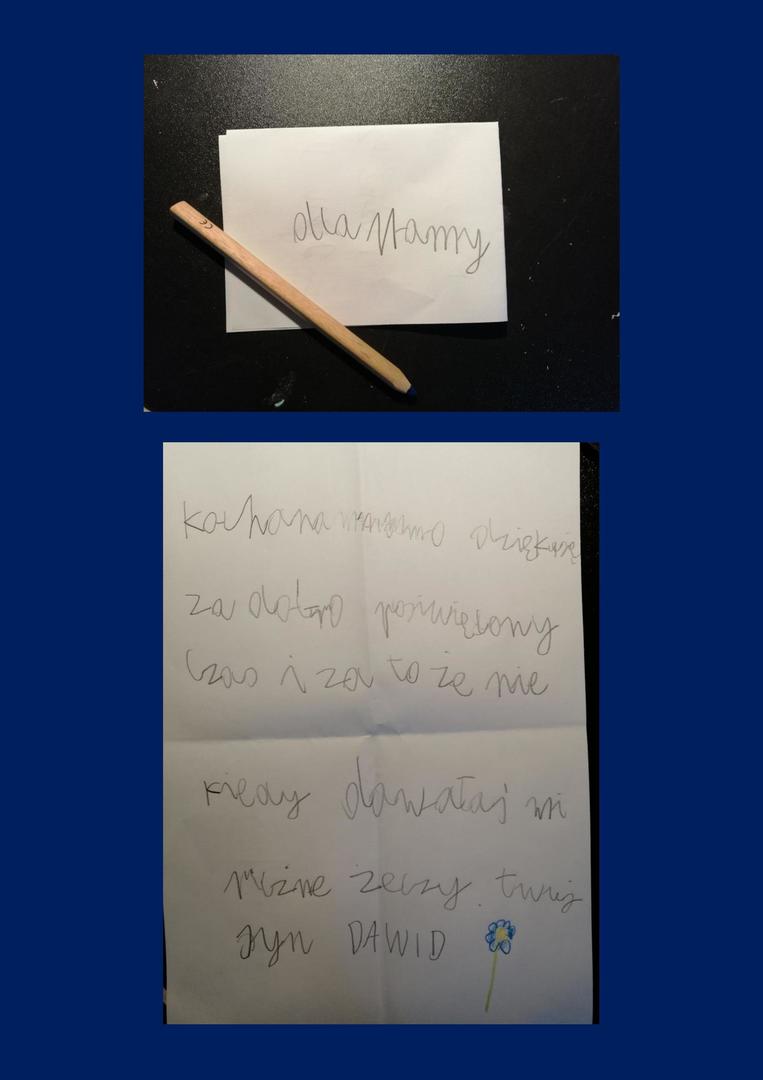 dla Mamy
kochana mamo dziękuję
za dobro poświęcony
czas i za to że nie
kiedy dawałaś mi
rużne żeczy. twuj
syn DAWID